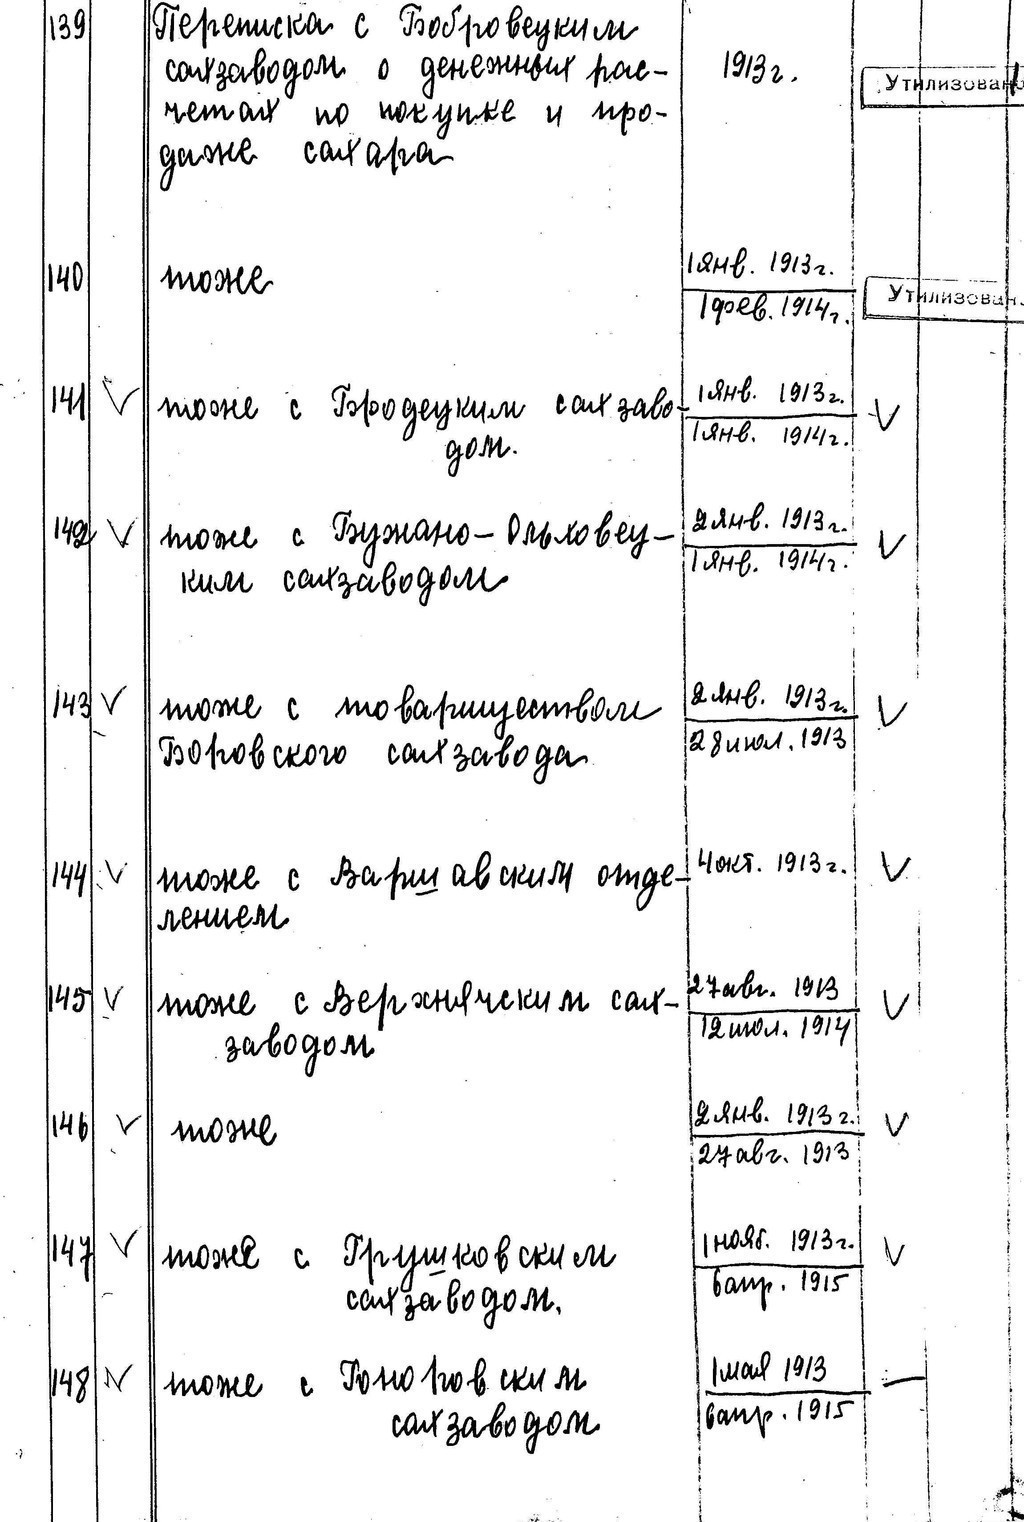 139 Переписка с Бобровецким
сахзаводом о денежных рас-
четах по покупке и про-
даже сахара
1913г.
Утилизовано
140 тоже
1 янв. 1913г.
1 фев. 1914г.
Утилизован
141 V тоже с Бродецким сахзаво-
дом.
1 янв. 1913г.
1 янв. 1914г.
V
142 V тоже с Бужано-Ольховец-
ким сахзаводом
2 янв. 1913г.
1 янв. 1914г.
V
143 V тоже с товариществом
Боровского сахзавода
2 янв. 1913г.
28 июл. 1913
V
144 V тоже с Варшавским отде-
лением
4 окт. 1913г.
V
145 V тоже с Верхнячским сах-
заводом
27 авг. 1913
12 июл. 1914
V
146 V тоже
2 янв. 1913г.
27 авг. 1913
V
147 V тоже с Грушковским
сахзаводом.
1 нояб. 1913г.
6 апр. 1915
V
148 V тоже с Гоноровским
сахзаводом
1 мая 1913
6 апр. 1915
—